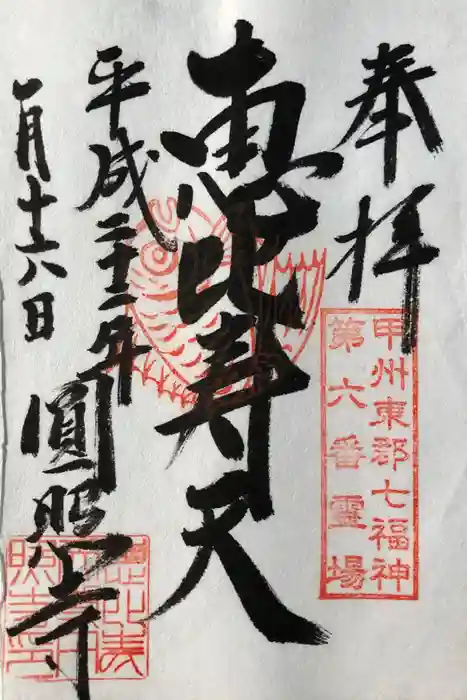 奉拝
甲州東郡七福神
第六番霊場
恵比寿天
平成二十一年
一月十六日
圓照寺